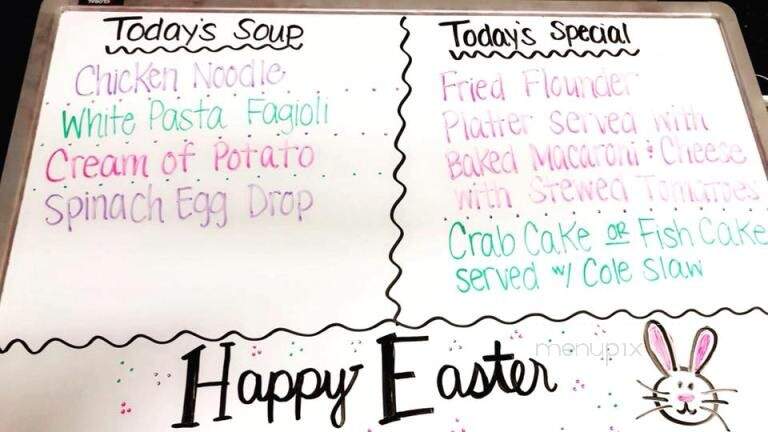 Today's Soup
Chicken Noodle
White Pasta Fagioli
Cream of Potato
Spinach Egg Drop
Today's Special
Fried Flounder
Platter served with
Baked Macaroni & Cheese
with Stewed Tomatoes
Crab Cake or Fish Cake
served w/ Cole Slaw
menupix
Happy Easter